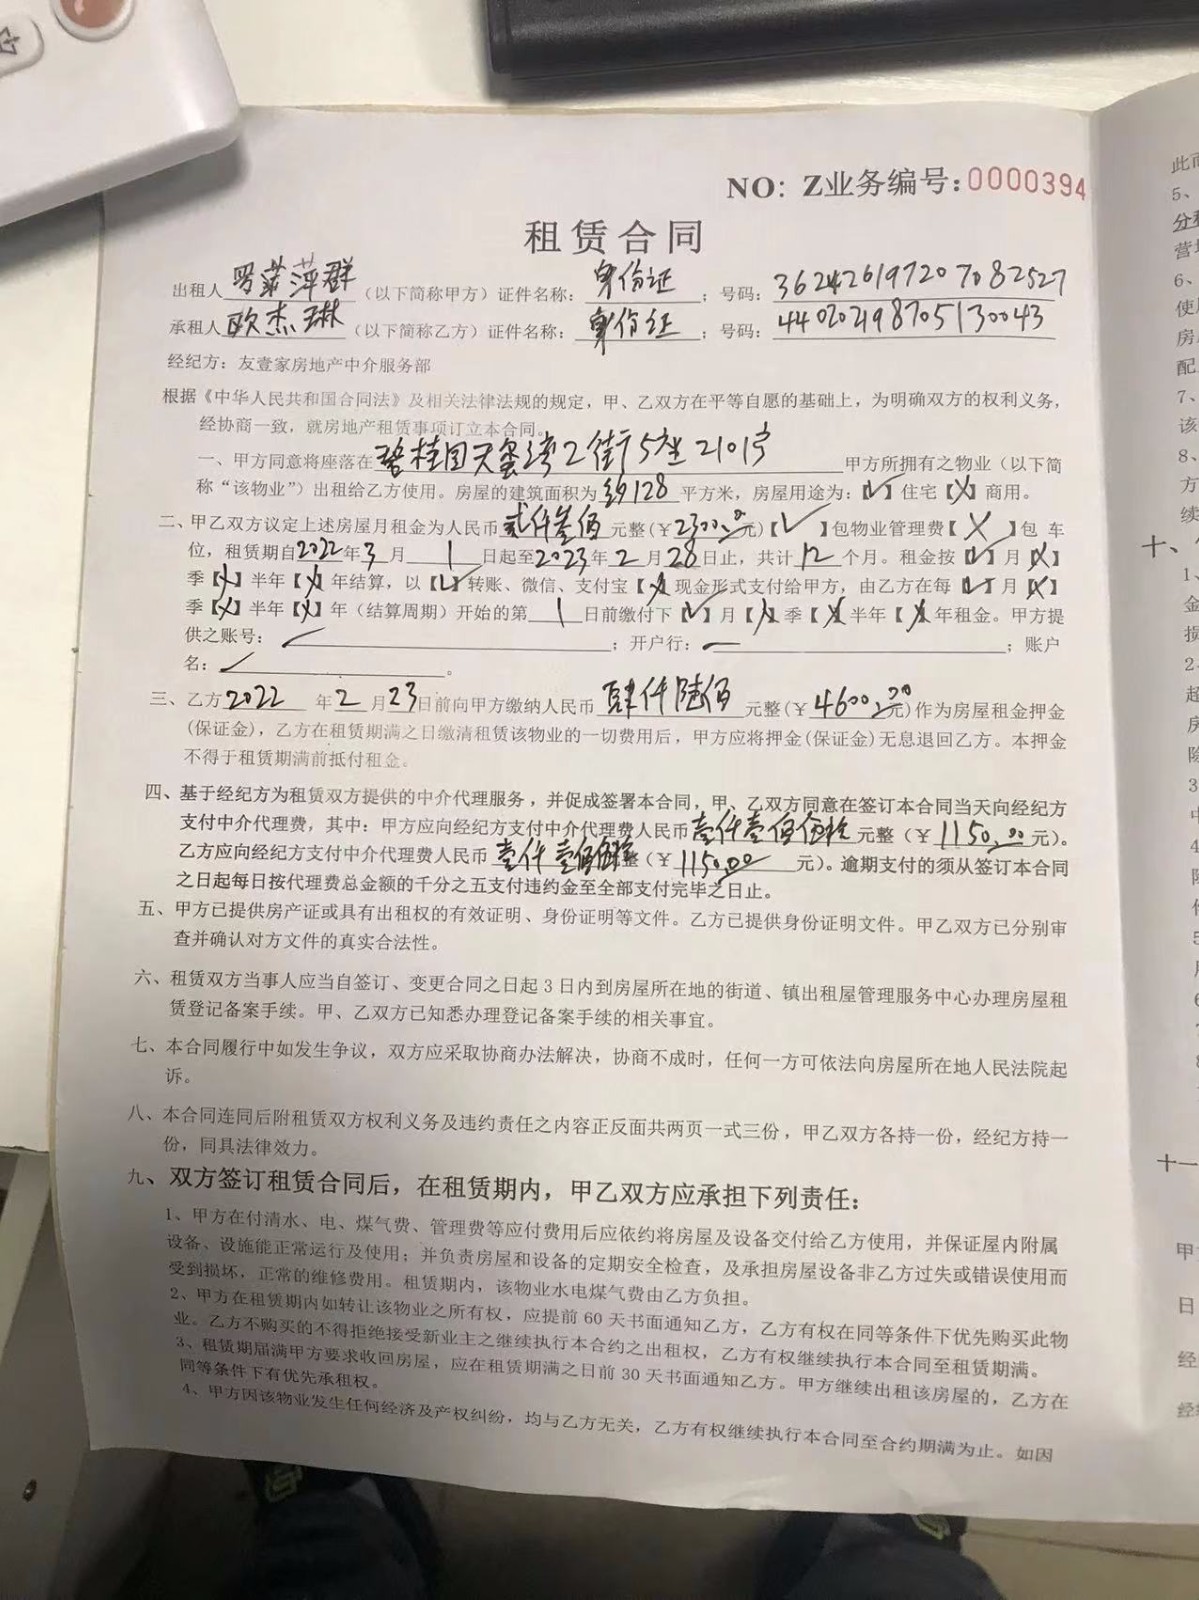 NO: Z业务编号:0000394
租赁合同
出租人 罗萍群 (以下简称甲方) 证件名称: 身份证 ; 号码: 362426197207082527
承租人 欧杰琳 (以下简称乙方) 证件名称: 身份证 ; 号码: 440202198705130043
经纪方: 友壹家房地产中介服务部
根据《中华人民共和国合同法》及相关法律法规的规定, 甲、乙双方在平等自愿的基础上, 为明确双方的权利义务,
经协商一致, 就房地产租赁事项订立本合同。
一、甲方同意将座落在 碧桂园天玺湾2街5座2101房 甲方所拥有之物业 (以下简
称“该物业”) 出租给乙方使用。房屋的建筑面积为 约128 平方米, 房屋用途为:【✓】住宅【X】商用。
二、甲乙双方议定上述房屋月租金为人民币 贰仟叁佰 元整(¥2300.00元)【✓】包物业管理费【X】包 车
位, 租赁期自2022年3月1日起至2023年2月28日止, 共计12个月。租金按【✓】月【X】
季【X】半年【X】年结算, 以【✓】转账、微信、支付宝【X】现金形式支付给甲方, 由乙方在每【✓】月【X】
季【X】半年【X】年 (结算周期) 开始的第1日前缴付下【✓】月【X】季【X】半年【X】年租金。甲方提
供之账号: ; 开户行: ; 账户
名: 。
三、乙方2022年2月23日前向甲方缴纳人民币 肆仟陆佰 元整(¥4600.00元)作为房屋租金押金
(保证金), 乙方在租赁期满之日缴清租赁该物业的一切费用后, 甲方应将押金(保证金)无息退回乙方。本押金
不得于租赁期满前抵付租金。
四、基于经纪方为租赁双方提供的中介代理服务, 并促成签署本合同, 甲、乙双方同意在签订本合同当天向经纪方
支付中介代理费, 其中: 甲方应向经纪方支付中介代理费人民币 壹仟壹佰伍拾 元整 (¥1150.00元)。
乙方应向经纪方支付中介代理费人民币 壹仟壹佰伍拾 整 (¥1150.00元)。逾期支付的须从签订本合同
之日起每日按代理费总金额的千分之五支付违约金至全部支付完毕之日止。
五、甲方已提供房产证或具有出租权的有效证明、身份证明等文件。乙方已提供身份证明文件。甲乙双方已分别审
查并确认对方文件的真实合法性。
六、租赁双方当事人应当自签订、变更合同之日起3日内到房屋所在地的街道、镇出租屋管理服务中心办理房屋租
赁登记备案手续。甲、乙双方已知悉办理登记备案手续的相关事宜。
七、本合同履行中如发生争议, 双方应采取协商办法解决, 协商不成时, 任何一方可依法向房屋所在地人民法院起
诉。
八、本合同连同后附租赁双方权利义务及违约责任之内容正反面共两页一式三份, 甲乙双方各持一份, 经纪方持一
份, 同具法律效力。
九、双方签订租赁合同后, 在租赁期内, 甲乙双方应承担下列责任:
1、甲方在付清水、电、煤气费、管理费等应付费用后应依约将房屋及设备交付给乙方使用, 并保证屋内附属
设备、设施能正常运行及使用; 并负责房屋和设备的定期安全检查, 及承担房屋设备非乙方过失或错误使用而
受到损坏, 正常的维修费用。租赁期内, 该物业水电煤气费由乙方负担。
2、甲方在租赁期内如转让该物业之所有权, 应提前60天书面通知乙方, 乙方有权在同等条件下优先购买此物
业。乙方不购买的不得拒绝接受新业主之继续执行本合约之出租权, 乙方有权继续执行本合同至租赁期满。
3、租赁期届满甲方要求收回房屋, 应在租赁期满之日前30天书面通知乙方。甲方继续出租该房屋的, 乙方在
同等条件下有优先承租权。
4、甲方因该物业发生任何经济及产权纠纷, 均与乙方无关, 乙方有权继续执行本合同至合约期满为止。如因